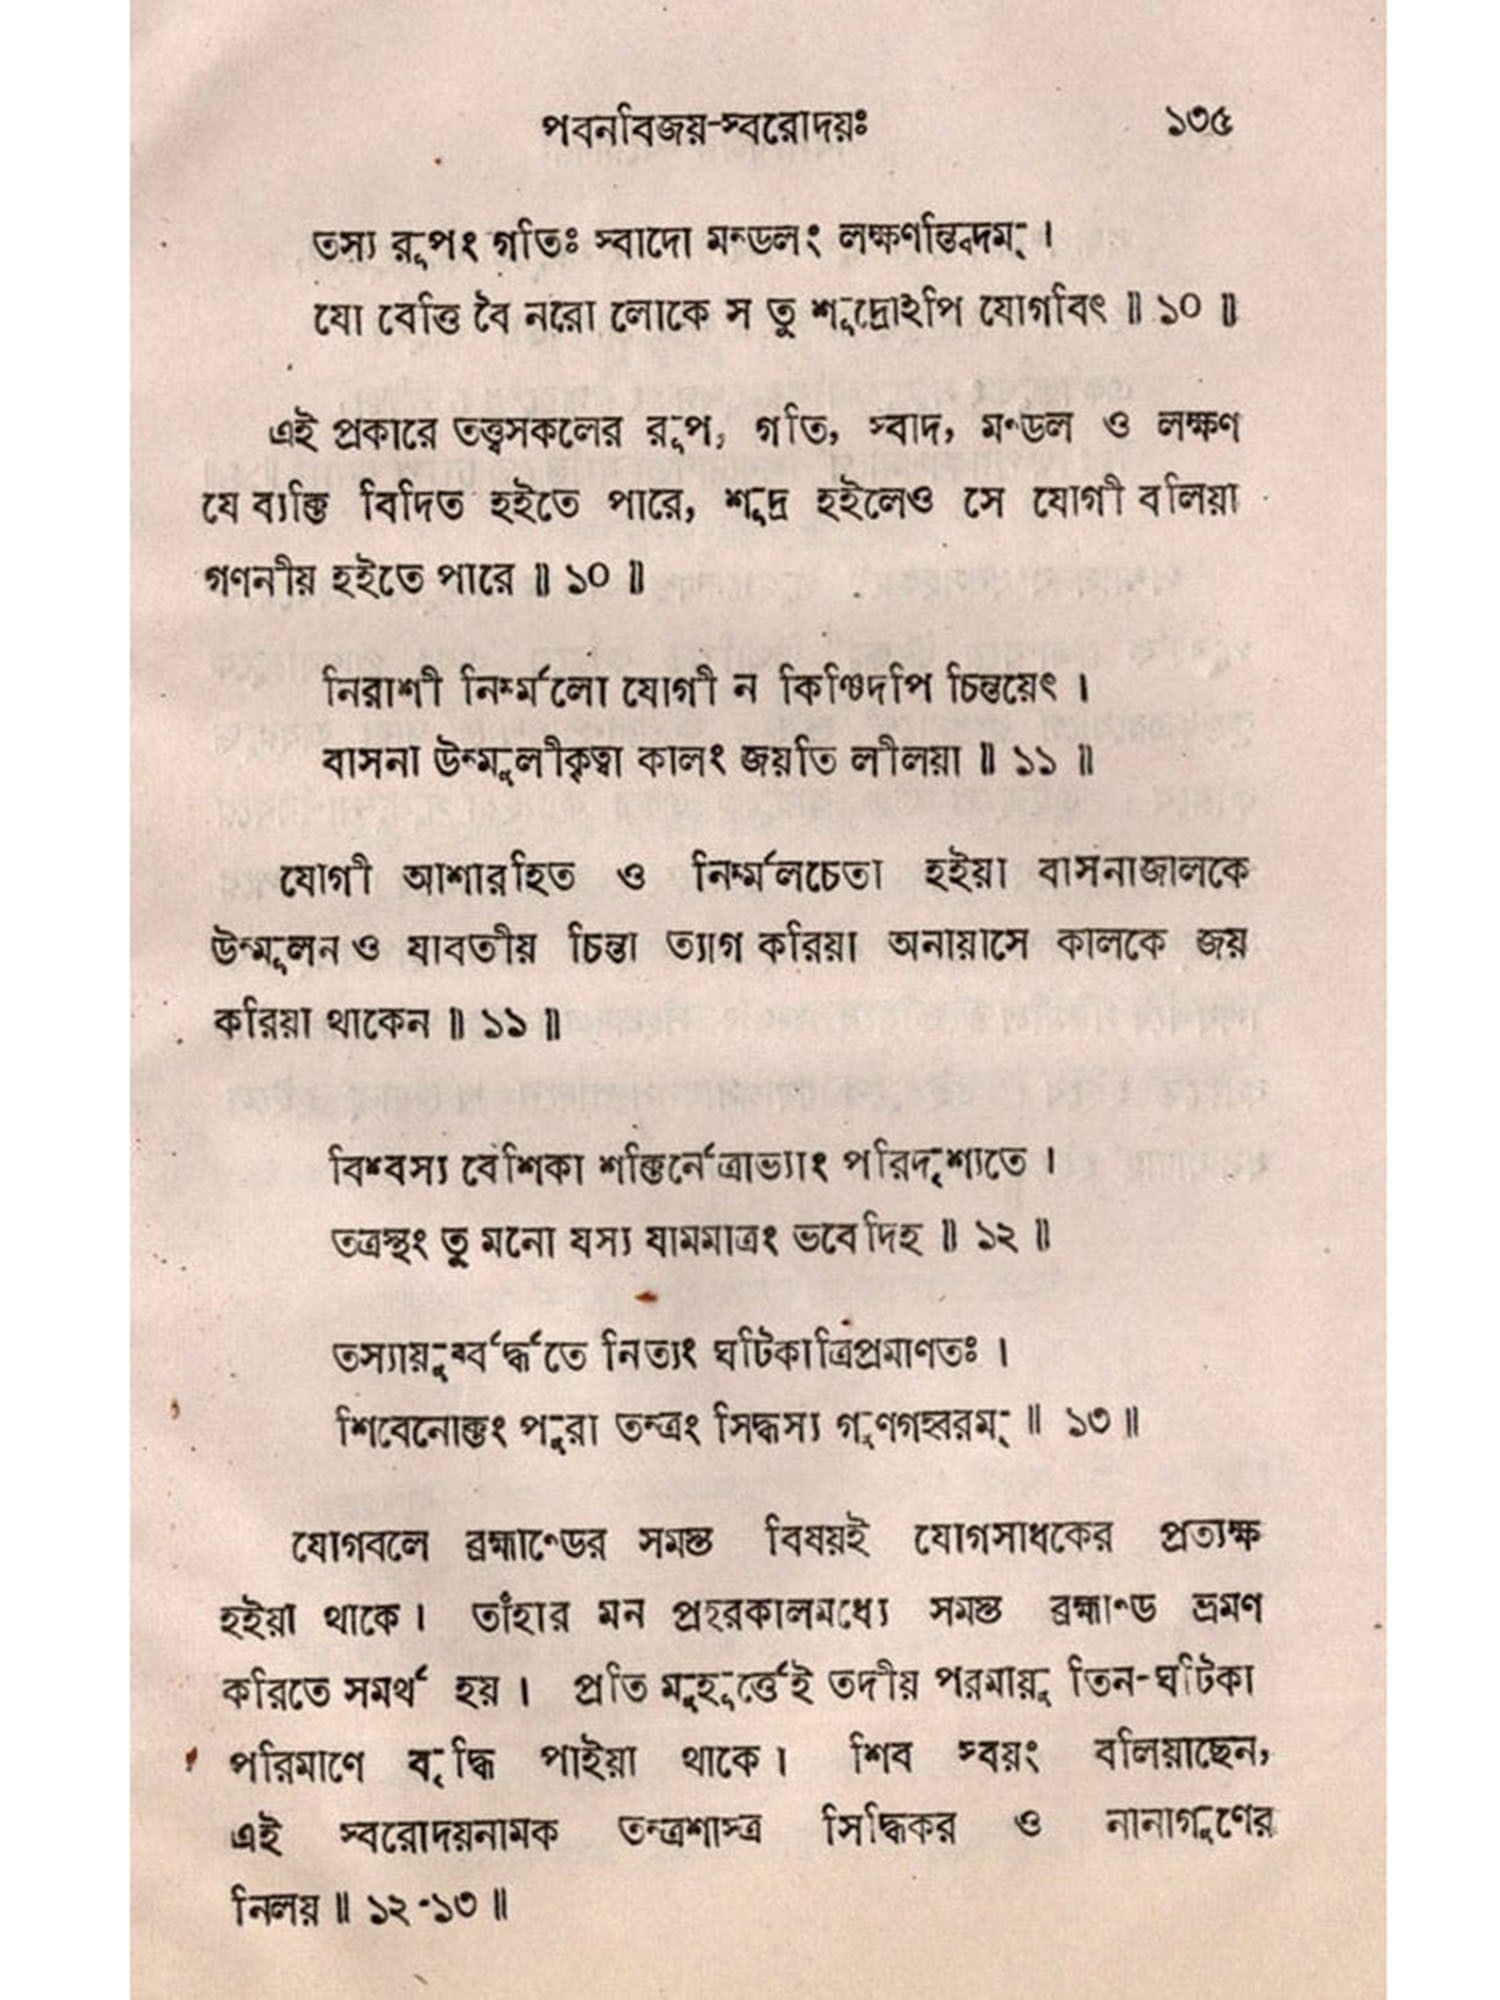 পবনবিজয়-স্বরোদয়ঃ ১৩৫
তস্য রূপং গতিঃ স্বাদো মণ্ডলং লক্ষণন্ত্বিদম্ ।
যো বেত্তি বৈ নরো লোকে স তু শূদ্রোঽপি যোগবিৎ ॥ ১০ ॥
এই প্রকারে তত্ত্বসকলের রূপ, গতি, স্বাদ, মণ্ডল ও লক্ষণ
যে ব্যক্তি বিদিত হইতে পারে, শূদ্র হইলেও সে যোগী বলিয়া
গণনীয় হইতে পারে ॥ ১০ ॥
নিরাশী নির্ম্মলো যোগী ন কিঞ্চিদপি চিন্তয়েৎ ।
বাসনা উন্মূলীকৃত্বা কালং জয়তি লীলয়া ॥ ১১ ॥
যোগী আশারহিত ও নির্ম্মলচেতা হইয়া বাসনাজালকে
উন্মূলন ও যাবতীয় চিন্তা ত্যাগ করিয়া অনায়াসে কালকে জয়
করিয়া থাকেন ॥ ১১ ॥
বিশ্বস্য বেশিকা শক্তির্নেত্রাভ্যাং পরিদৃশ্যতে ।
তত্রস্থং তু মনো যস্য যামমাত্রং ভবেদিহ ॥ ১২ ॥
তস্যায়ুর্ব্বর্দ্ধতে নিত্যং ঘটিকাত্রিপ্রমাণতঃ ।
শিবেনোক্তং পুরা তন্ত্রং সিদ্ধস্য গুণগহ্বরম্ ॥ ১৩ ॥
যোগবলে ব্রহ্মাণ্ডের সমস্ত বিষয়ই যোগসাধকের প্রত্যক্ষ
হইয়া থাকে । তাঁহার মন প্রহরকালমধ্যে সমস্ত ব্রহ্মাণ্ড ভ্রমণ
করিতে সমর্থ হয় । প্রতি মুহূর্ত্তেই তদীয় পরমায়ু তিন-ঘটিকা
পরিমাণে বৃদ্ধি পাইয়া থাকে । শিব স্বয়ং বলিয়াছেন,
এই স্বরোদয়নামক তন্ত্রশাস্ত্র সিদ্ধিকর ও নানাগুণের
নিলয় ॥ ১২-১৩ ॥